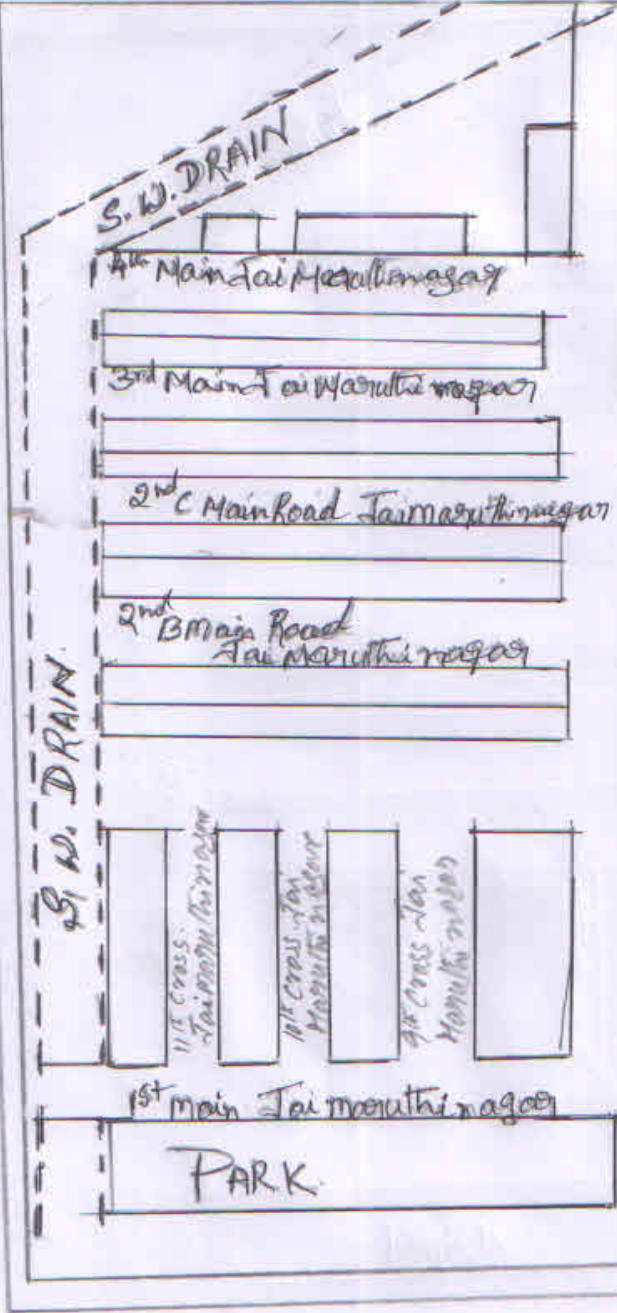 S. W. DRAIN
4th Main Jai Maruthinagar
3rd Main Jai Maruthi nagar
2nd C Main Road Jaimaruthinagar
2nd B Main Road
Jai Maruthi nagar
S. W. DRAIN
11th Cross
Jaimaruthinagar
10th Cross Jai
Maruthi nagar
9th Cross Jai
Maruthi nagar
1st main Jai maruthi nagar
PARK.